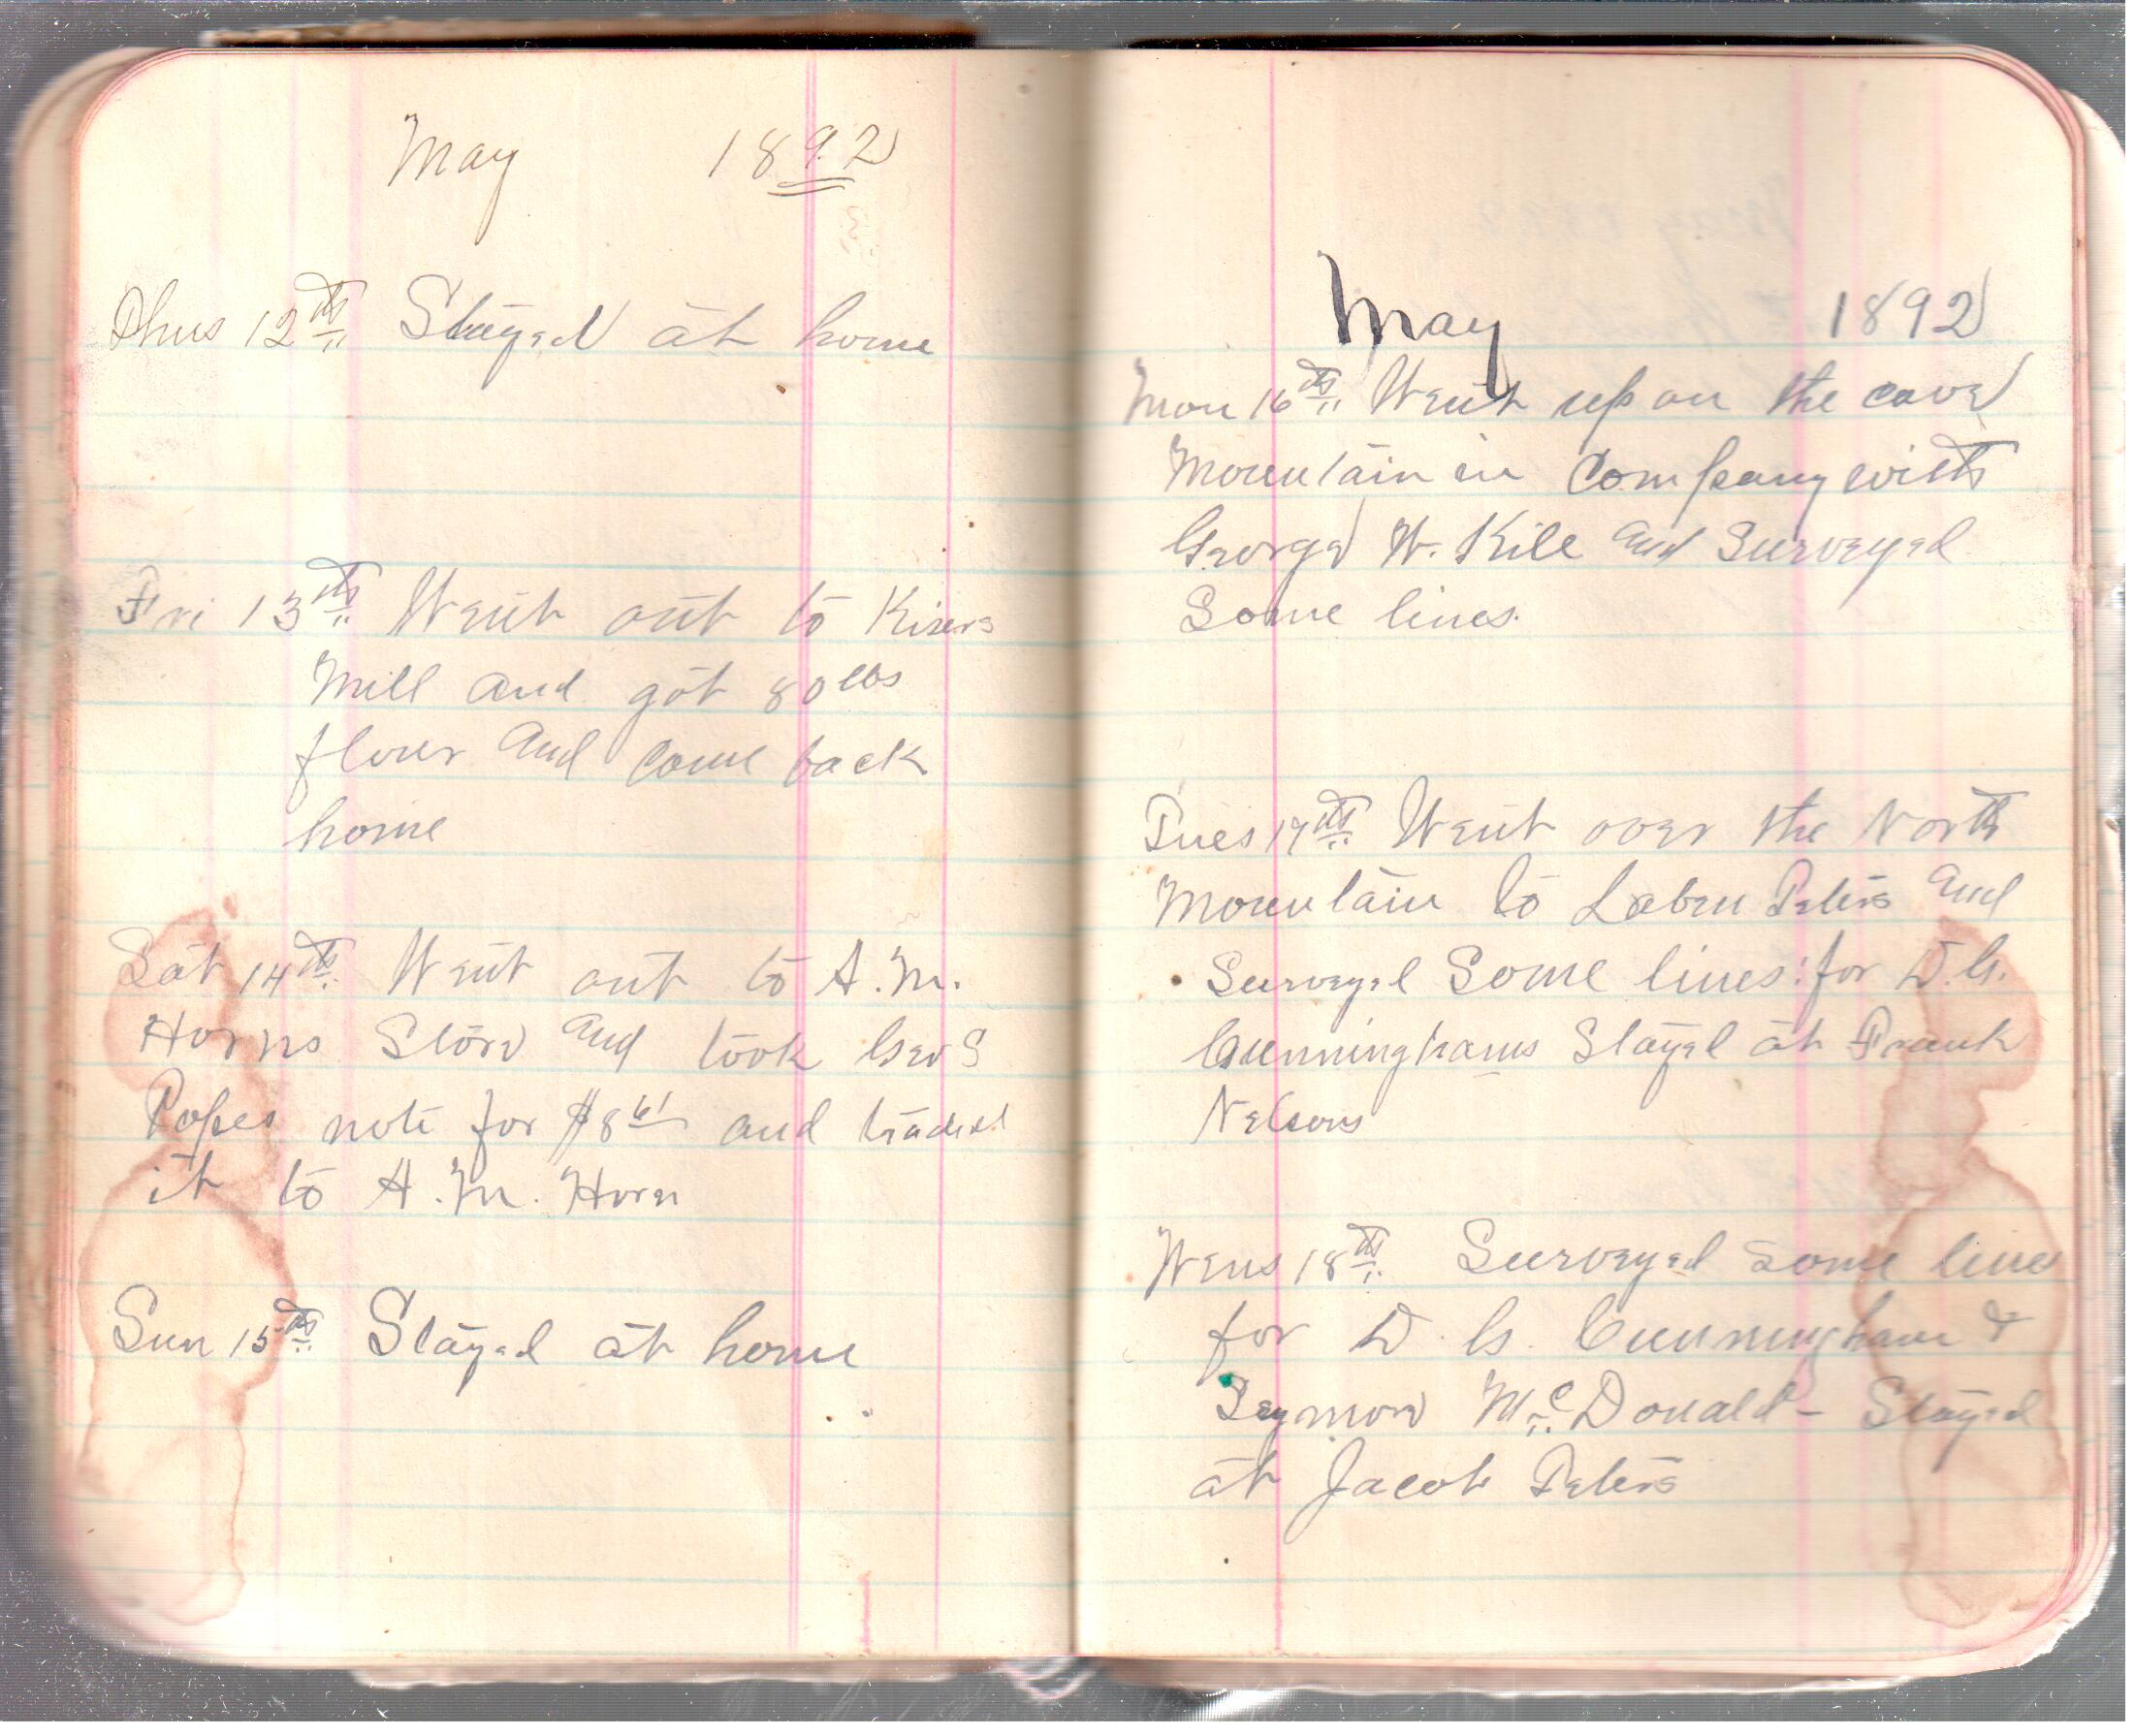 May 1892
Thus 12th Stayed at home
Fri 13th Went out to Kisers
Mill and got 80 lbs
flour and come back
home
Sat 14th Went out to A. M.
Horns Store and took Geo S
Popes note for $8 61 and traded
it to A. M. Horn
Sun 15th Stayed at home
May 1892
Mon 16th Went up on the cove
Mountain in Company with
George W. Kile and Surveyed
Some lines.
Tues 17th Went over the North
Mountain to Laben Peters and
Surveyed Some lines for D. G.
Cunninghams Stayed at Frank
Nelsons
Wens 18th Surveyed some lines
for D. G. Cunningham &
Seymore McDonald - Stayed
at Jacob Peters